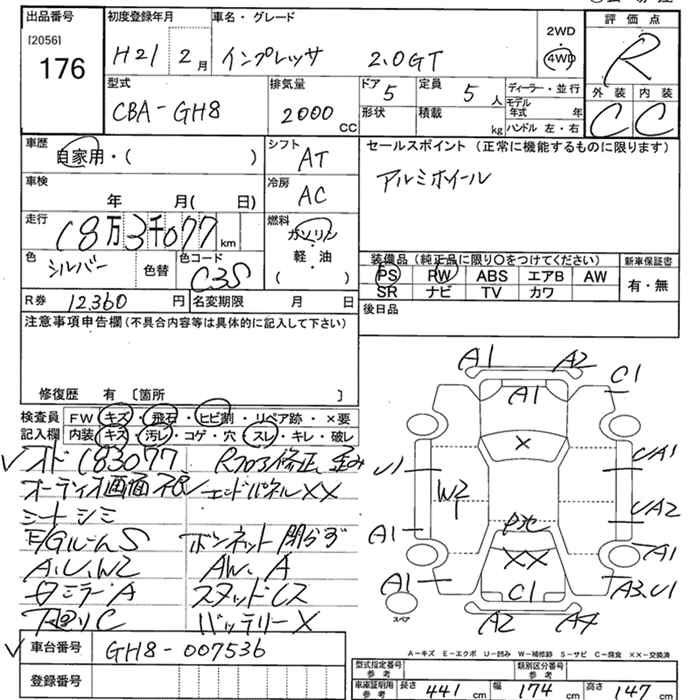 出品番号 初度登録年月 車名・グレード 評価点
[2056]
176
H21 2月 インプレッサ 2.0GT
2WD
4WD
R
型式 排気量 ドア 5 定員 5人 ディーラー・並行 外装 内装
CBA-GH8 2000cc 形状 積載 kg モデル年式 年
ハンドル 左・右
C C
車歴 自家用・( ) シフト AT
セールスポイント (正常に機能するものに限ります)
アルミホイール
車検 年 月( 日) 冷房 AC
走行 18万3千077km 燃料 ガソリン・軽油・( )
色 シルバー 色替 色コード C3S
装備品(純正品に限り○をつけてください) 新車保証書
PS PW ABS エアB AW 有・無
SR ナビ TV カワ
R券 12,360円 名変期限 月 日
後日品
注意事項申告欄(不具合内容等は具体的に記入して下さい)
修復歴 有 〔箇所 〕
検査員記入欄
FW キズ・飛石・ヒビ割・リペア跡・×要
内装 キズ・汚レ・コゲ・穴・スレ・キレ・破レ
オド 183077、 Rフロア修正、歪み
オーディオ画面不良 エンドパネルXX
シートシミ
E/GルームS ボンネット閉らず
A.U.W2 AW.A
ミラーA スタッドレス
下廻りC バッテリーX
車台番号 GH8-007536
登録番号
A1 A2 C1
A1
X
U1 UA1
W2
UA2
A1 P地 A1
XX
A1 C1 A3.U1
スペア
A2 A4
A-キズ E-エクボ U-凹み W-補修跡 S-サビ C-腐食 ××-交換済
型式指定番号 参考 類別区分番号 参考
車庫証明用 参考 長さ 441cm 幅 174cm 高さ 147cm